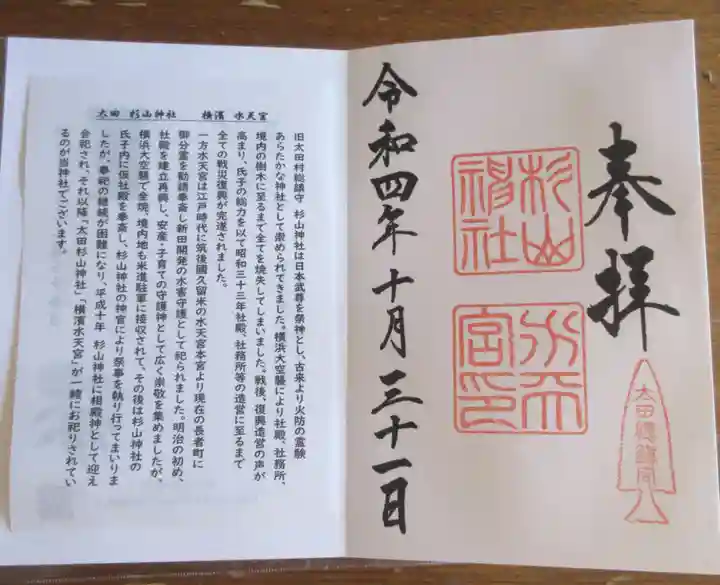 奉拝
杉山
神社
水天
宮印
令和四年十月三十一日
太田 杉山神社 横濱 水天宮
旧太田村総鎮守 杉山神社は日本武尊を祭神とし、古来より火防の霊験
あらたかな神社として崇められてきました。横浜大空襲により社殿、社務所、
境内の樹木に至るまで全てを焼失してしまいました。戦後、復興造営の声が
高まり、氏子の総力を以て昭和三十三年社殿、社務所等の造営に至るまで
全ての戦災復興が完遂されました。
一方水天宮は江戸時代に筑後國久留米の水天宮本宮より現在の長者町に
御分霊を勧請奉斎し新田開発の水害守護として祀られました。明治の初め、
社殿を建立再興し、安産・子育ての守護神として広く崇敬を集めましたが、
横浜大空襲で全焼、境内地も米進駐軍に接収されて、その後は杉山神社の
氏子内に仮社殿を奉斎し、杉山神社の神官により祭事を執り行ってまいりま
したが、奉祀の継続が困難になり、平成十年 杉山神社に相殿神として迎え
合祀され、それ以降「太田杉山神社」「横濱水天宮」が一緒にお祀りされてい
るのが当神社でございます。